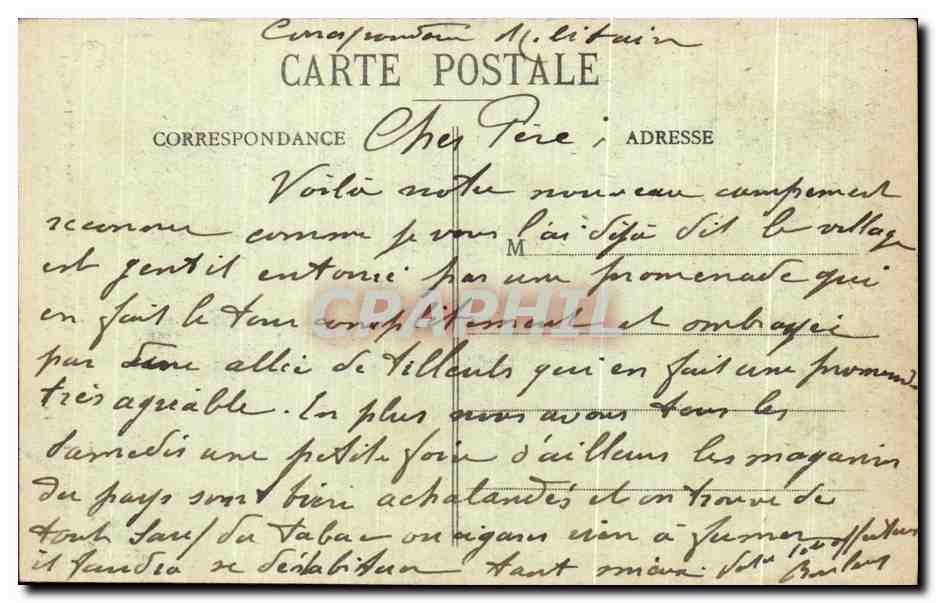 Correspondance Militaire
CARTE POSTALE
CORRESPONDANCE Cher Père, ADRESSE
Voilà notre nouveau campement
comme je vous l'ai déjà dit le village
M
est gentil entouré par une promenade qui
en fait le tour complètement et ombragée
CPAPHIL
par une allée de tilleuls qui en fait une promenade
très agréable. En plus nous avons tous les
samedis une petite foire d'ailleurs les magasins
du pays sont bien achalandés et on trouve de
tout sauf du tabac ou cigares rien à fumer
il faudra se déshabituer tant mieux. Votre fils affectueux